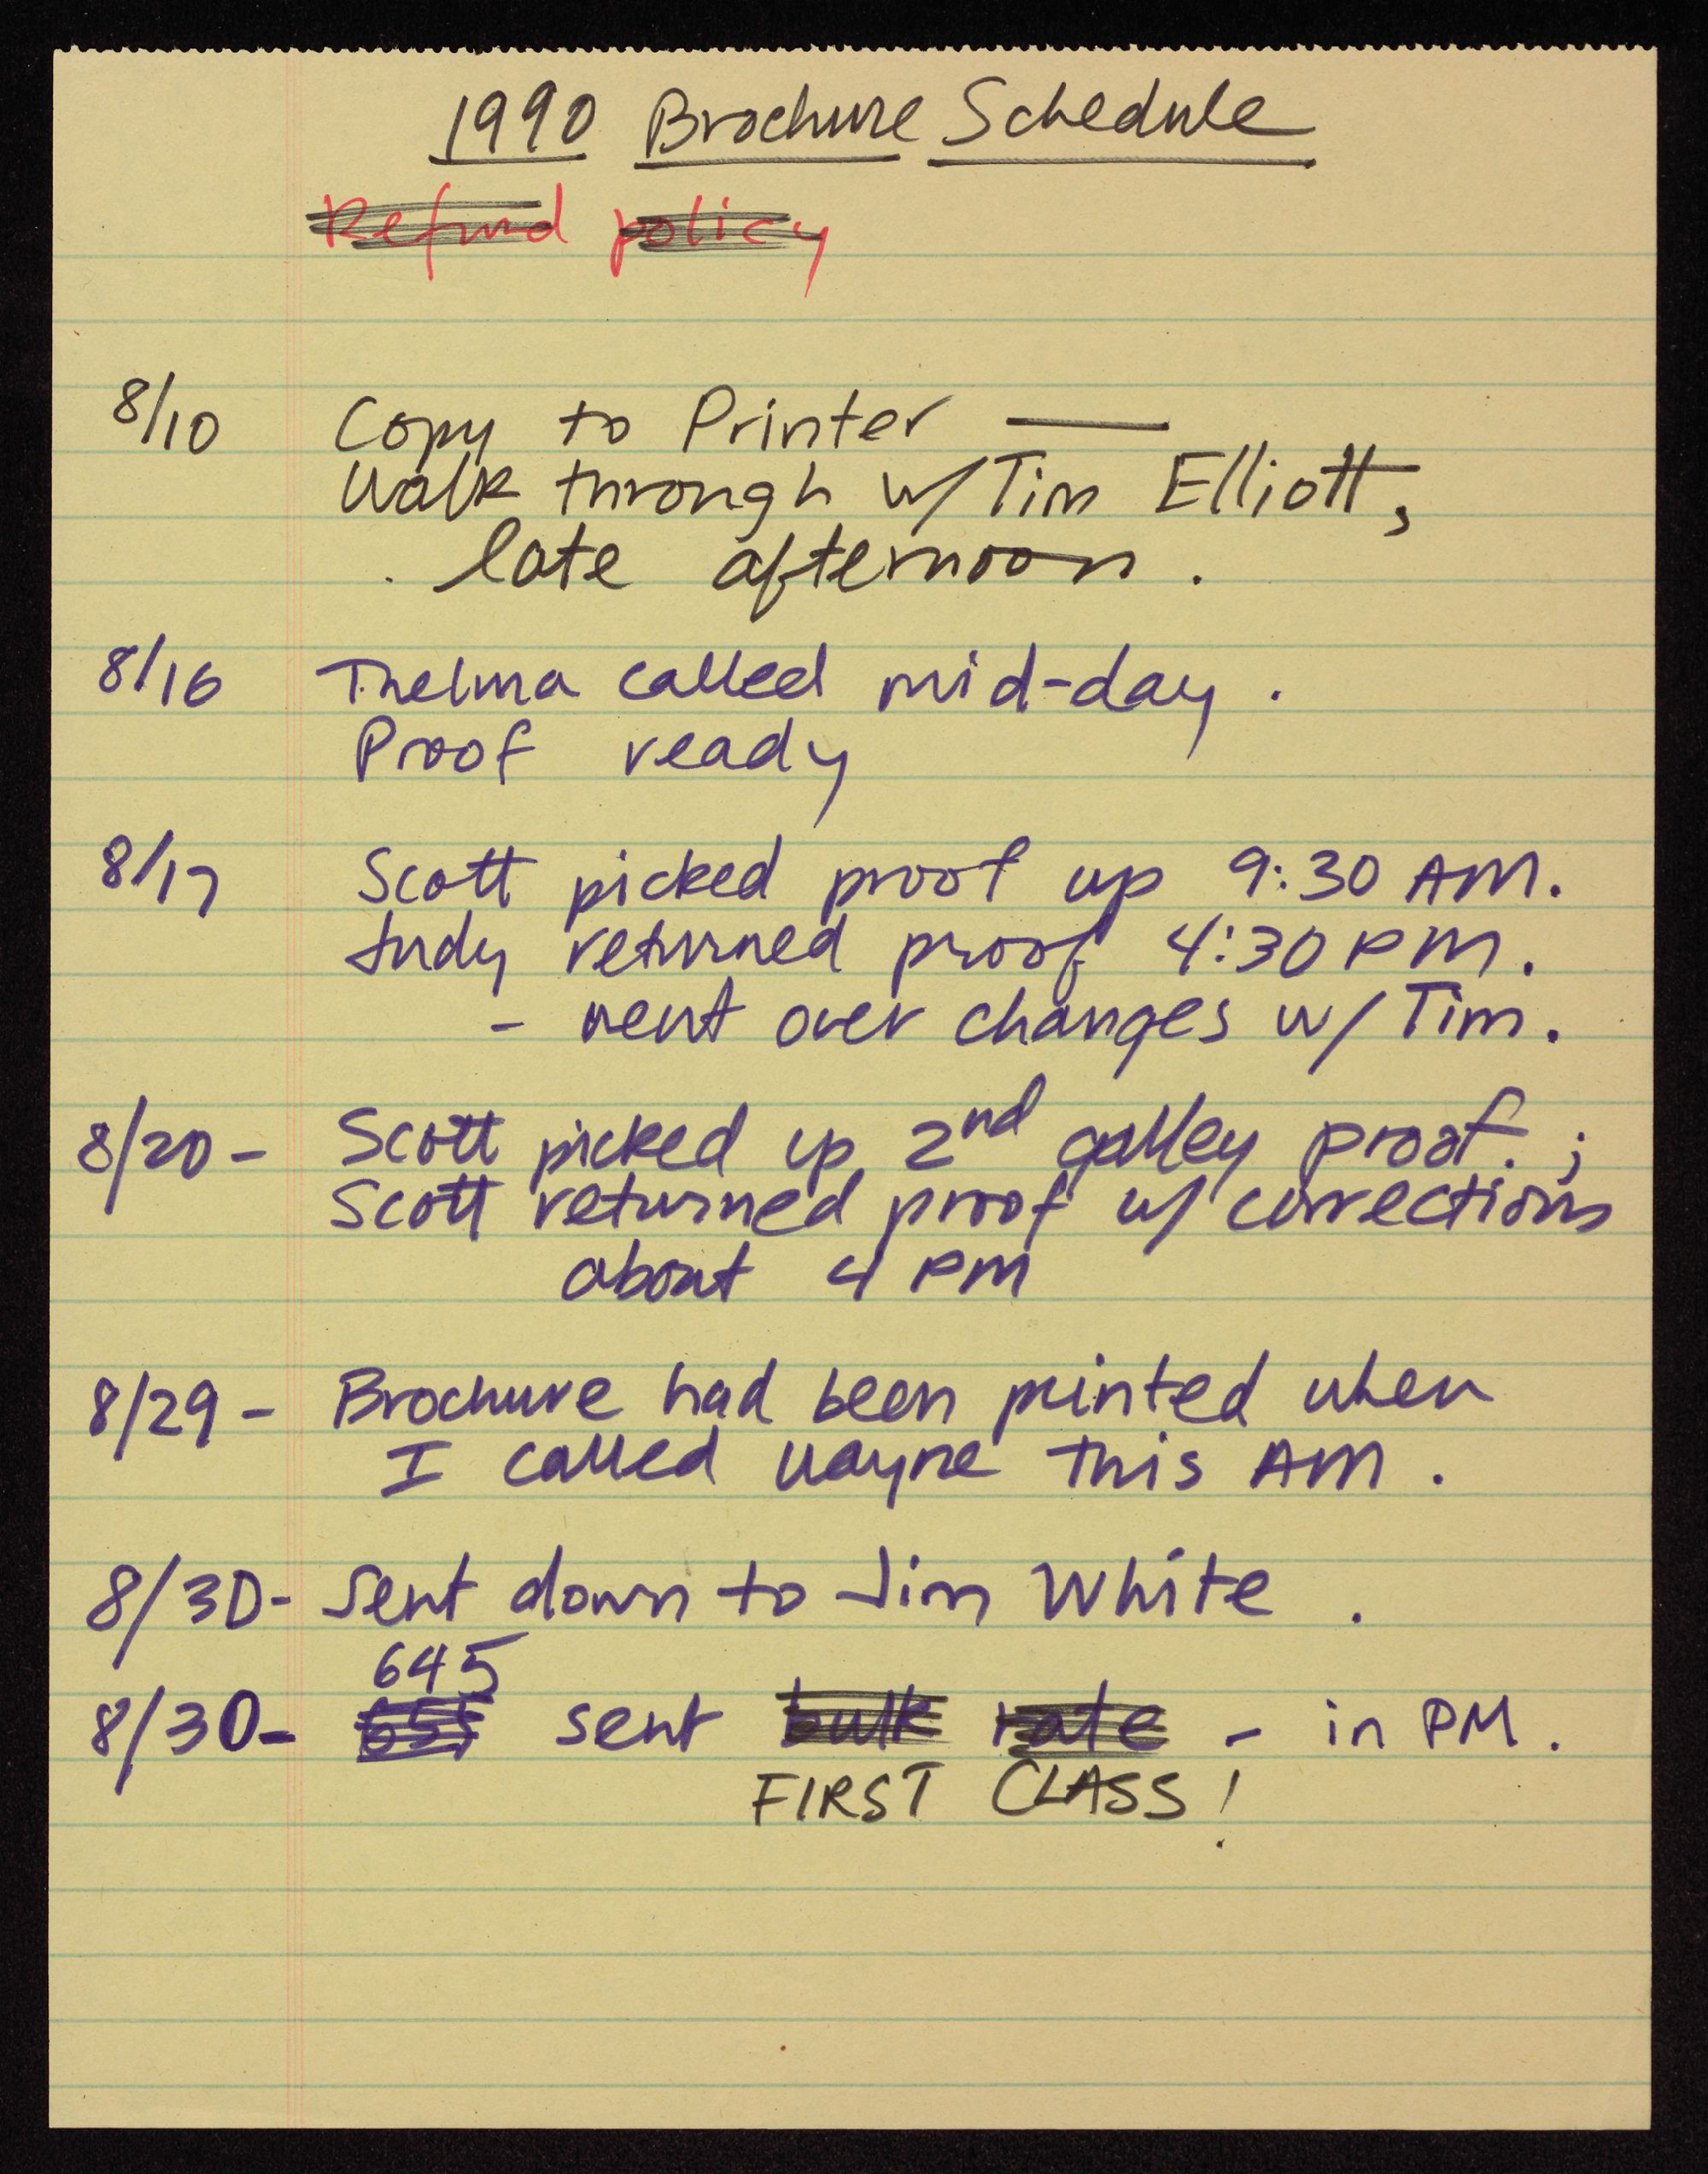 1990 Brochure Schedule
Refund policy
8/10 Copy to Printer —
Walk through w/ Tim Elliott,
late afternoon.
8/16 Thelma called mid-day.
Proof ready
8/17 Scott picked proof up 9:30 AM.
Judy returned proof 4:30 PM.
- went over changes w/ Tim.
8/20 - Scott picked up 2nd galley proof.;
Scott returned proof w/ corrections
about 4 PM
8/29 - Brochure had been printed when
I called Wayne this AM.
8/30 - Sent down to Jim White.
645
8/30 - sent bulk rate - in PM.
FIRST CLASS!